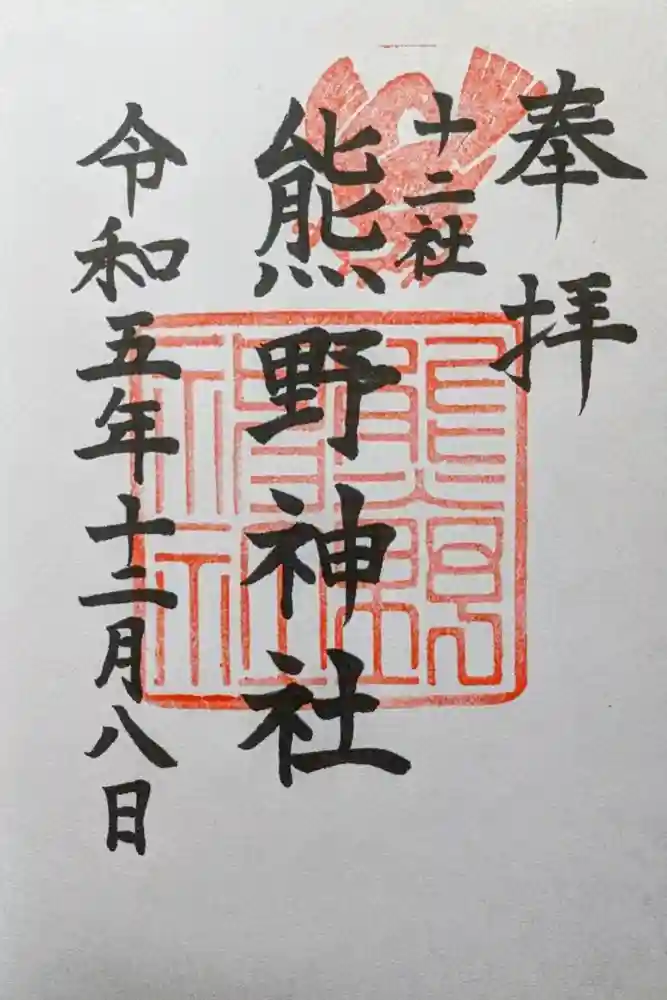 奉拝
十二社
熊野神社
令和五年十二月八日